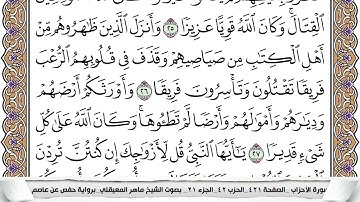 ٱلْقِتَالَ ۚ وَكَانَ ٱللَّهُ قَوِيًّا عَزِيزًا ٢٥ وَأَنزَلَ ٱلَّذِينَ ظَٰهَرُوهُم مِّنْ
أَهْلِ ٱلْكِتَٰبِ مِن صَيَاصِيهِمْ وَقَذَفَ فِى قُلُوبِهِمُ ٱلرُّعْبَ
فَرِيقًا تَقْتُلُونَ وَتَأْسِرُونَ فَرِيقًا ٢٦ وَأَوْرَثَكُمْ أَرْضَهُمْ
وَدِيَٰرَهُمْ وَأَمْوَٰلَهُمْ وَأَرْضًا لَّمْ تَطَـُٔوهَا ۚ وَكَانَ ٱللَّهُ عَلَىٰ كُلِّ
شَىْءٍ قَدِيرًا ٢٧ يَٰٓأَيُّهَا ٱلنَّبِىُّ قُل لِّأَزْوَٰجِكَ إِن كُنتُنَّ تُرِدْنَ
سورة الأحزاب _ الصفحة ٤٢١ _ الحزب ٤٢ _ الجزء ٢١ _ بصوت الشيخ ماهر المعيقلي _ برواية حفص عن عاصم